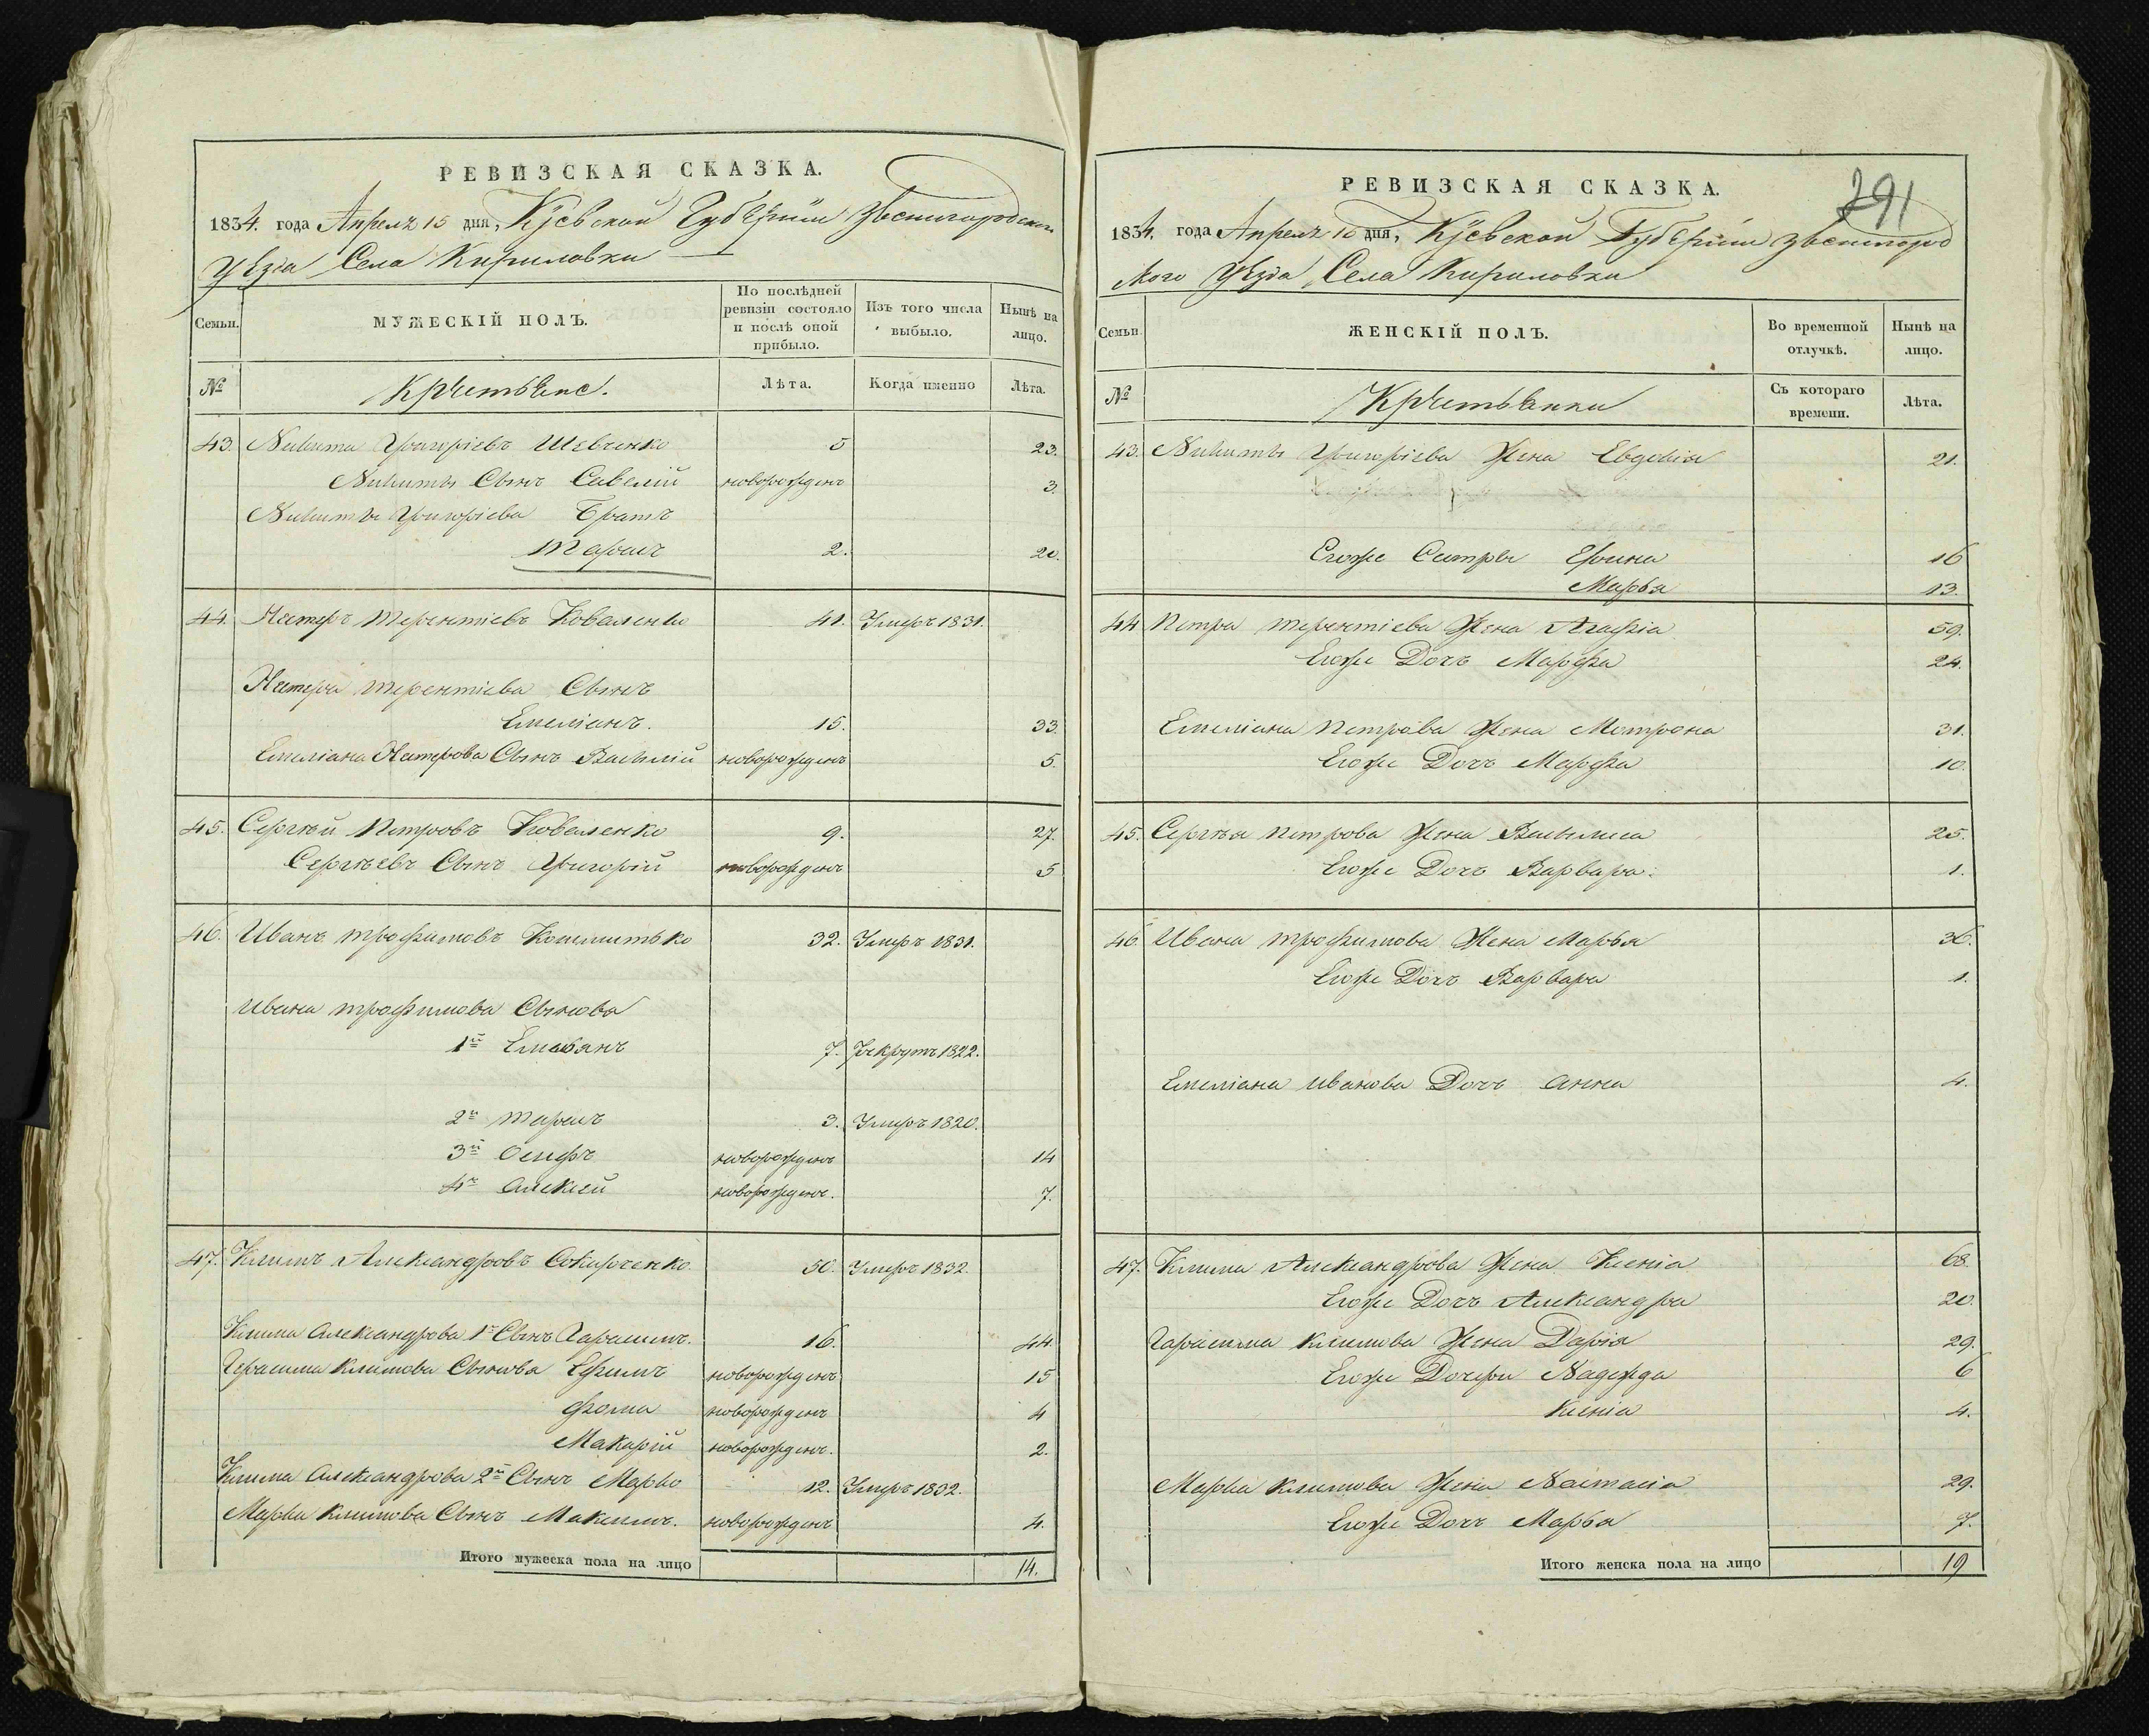 РЕВИЗСКАЯ СКАЗКА.
1834. года Апреля 15 дня, Кіевской Губерніи Звенигородскаго
уѣзда Села Кириловки
Семьи.
МУЖЕСКІЙ ПОЛЪ.
По послѣдней ревизіи состояло и послѣ оной прибыло.
Изъ того числа выбыло.
Нынѣ на лицо.
№
Крестьяне.
Лѣта.
Когда именно
Лѣта.
43. Никита Григоріевъ Шевченко 5 23.
Никиты Сынъ Савелій новорожденъ 3.
Никиты Григоріева Братъ
Тарасъ 2. 20.
44. Нестеръ Терентіевъ Коваленко 41. Умеръ 1831.
Нестера Терентіева Сынъ
Емеліанъ. 15. 33.
Емеліана Нестерова Сынъ Василій новорожденъ 5.
45. Сергѣй Петровъ Коваленко 9. 27.
Сергѣевъ Сынъ Григорій новорожденъ 5
46. Иванъ Трофимовъ 32. Умеръ 1831.
Ивана Трофимова Сыновья
1й Емельянъ 7. Рекрутъ 1822.
2й Тарасъ 3. Умеръ 1820.
3й Осипъ новорожденъ 14
4й Алексей новорожденъ. 7.
47. Климъ Александровъ 50. Умеръ 1832.
Клима Александрова 1й Сынъ Гарасимъ. 16. 44.
Герасима Климова Сыновья Ефимъ новорожденъ 15
Фома новорожденъ 4
Макарій новорожденъ. 2.
Клима Александрова 2й Сынъ Марко 12. Умеръ 1832.
Марка Климова Сынъ Максимъ. новорожденъ 4.
Итого мужеска пола на лицо 14.
291
РЕВИЗСКАЯ СКАЗКА.
1834. года Апреля 15 дня, Кіевской Губерніи Звенигород
ского уѣзда Села Кириловки
Семьи.
ЖЕНСКІЙ ПОЛЪ.
Во временной отлучкѣ.
Нынѣ на лицо.
№
Крестьянки
Съ котораго времени.
Лѣта.
43. Никиты Григоріева Жена Евдокія 21.
Егоже Сестры Ерина 16
Марья 13.
44 Петра Терентіева Жена Агафіа 59.
Егоже Дочъ Марфа 24.
Емеліана Петрова Жена Мотрона 31.
Егоже Дочъ Марфа 10.
45. Сергѣя Петрова Жена Василиса 25.
Егоже Дочъ Варвара. 1.
46. Ивана Трофимова Жена Марья 36.
Егоже Дочъ Варвара 1.
Емеліана Иванова Дочъ Анна 4.
47. Клима Александрова Жена Ксеніа 68.
Егоже Дочъ Александра 20.
Гарасима Климова Жена Даріа 29.
Егоже Дочери Надежда 6
Ксеніа 4.
Марка Климова Жена Настасіа 29.
Егоже Дочъ Марья 7.
Итого женска пола на лицо 19